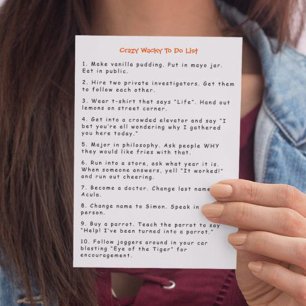 Crazy Wacky To Do List
1. Make vanilla pudding. Put in mayo jar.
Eat in public.
2. Hire two private investigators. Get them
to follow each other.
3. Wear t-shirt that says "Life". Hand out
lemons on street corner.
4. Get into a crowded elevator and say "I
bet you're all wondering why I gathered
you here today."
5. Major in philosophy. Ask people WHY
they would like fries with that.
6. Run into a store, ask what year it is.
When someone answers, yell "It worked!"
and run out cheering.
7. Become a doctor. Change last name
Acula.
8. Change name to Simon. Speak in
person.
9. Buy a parrot. Teach the parrot to say
"Help! I've been turned into a parrot."
10. Follow joggers around in your car
blasting "Eye of the Tiger" for
encouragement.